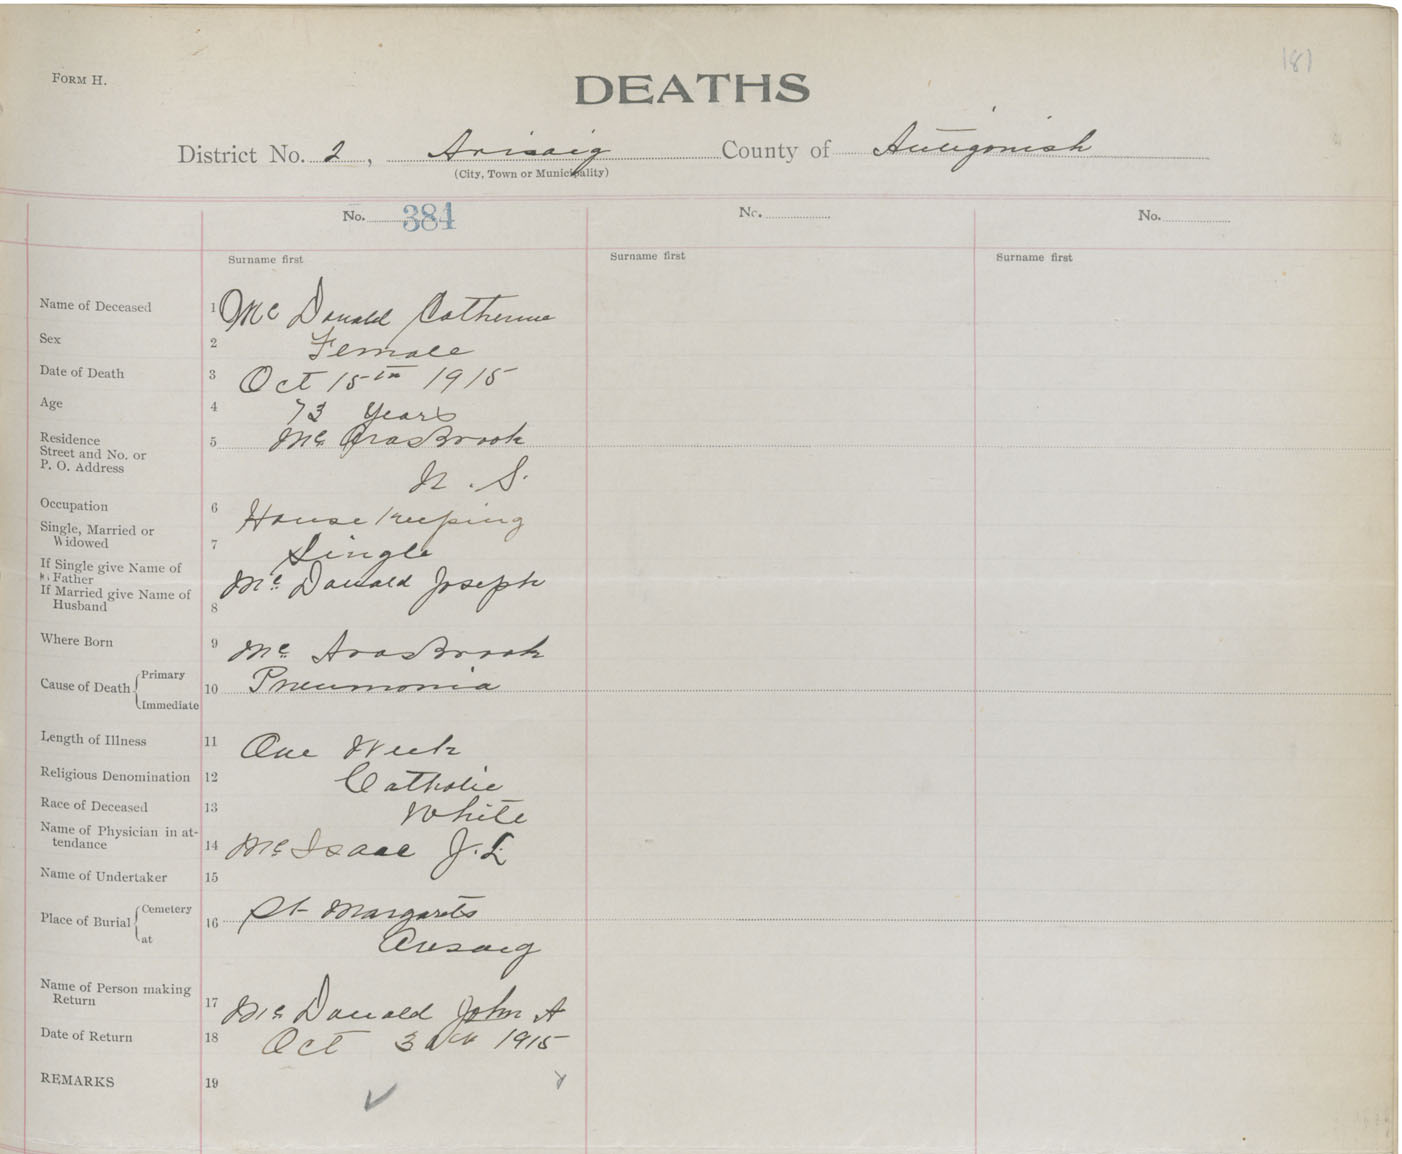 181
FORM H.
DEATHS
District No. 2, Arisaig County of Antigonish
(City, Town or Municipality)
No. 384 No. No.
Surname first Surname first Surname first
Name of Deceased 1 Mc Donald Catherine
Sex 2 Female
Date of Death 3 Oct 15th 1915
Age 4 73 Years
Residence 5 Mc Aras Brook
Street and No. or
P. O. Address
N. S.
Occupation 6 House Keeping
Single, Married or
Widowed 7 Single
If Single give Name of
Father Mc Donald Joseph
If Married give Name of
Husband 8
Where Born 9 Mc Aras Brook
Cause of Death Primary 10 Pneumonia
Immediate
Length of Illness 11 One Week
Religious Denomination 12 Catholic
Race of Deceased 13 White
Name of Physician in at-
tendance 14 Mc Isaac J. L
Name of Undertaker 15
Place of Burial Cemetery 16 St Margarets
at Arisaig
Name of Person making
Return 17 Mc Donald John A
Date of Return 18 Oct 1915
REMARKS 19